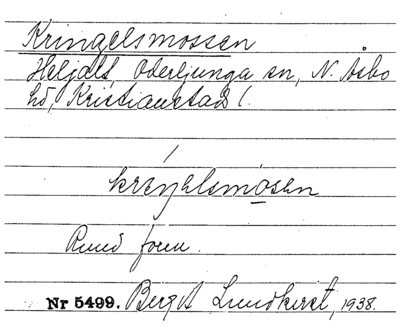 Kringelsmossen
Heljalt, Oderljunga sn, N. Åsbo
hd, Kristianstads l.
kreŋəlsmosən
Rund form.
Nr 5499. Bergit Lundkvist, 1938.